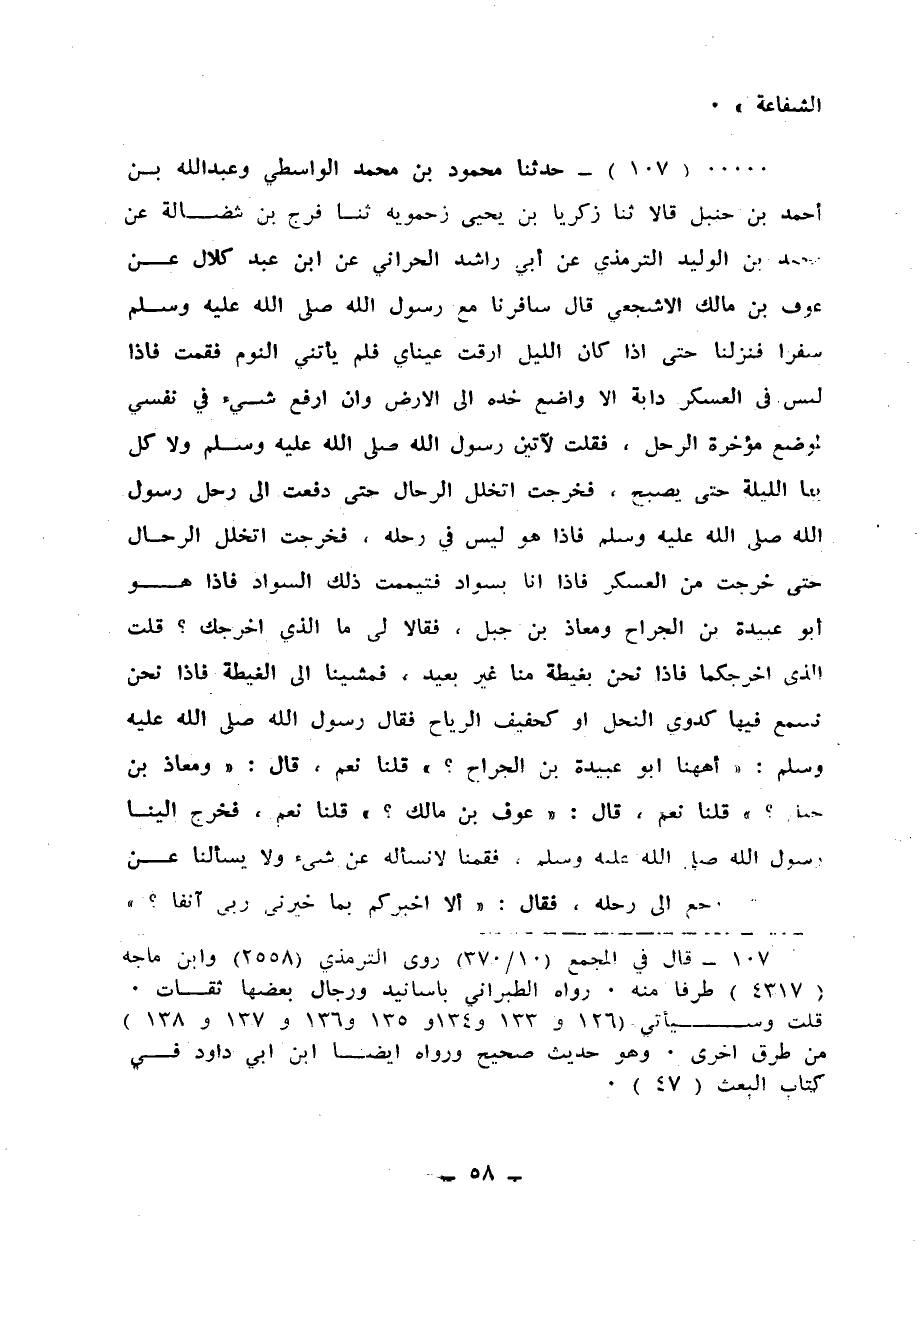 الشفاعة » ٠
٠٠٠٠٠ ( ١٠٧ ) ــ حدثنا محمود بن محمد الواسطي وعبدالله بــن
أحمد بن حنبل قالا ثنا زكريا بن يحيى زحمويه ثنــا فرج بن فضــالة عن
بن الوليد الترمذي عن أبي راشد الحراني عن ابن عبد كلال عــن
عوف بن مالك الاشجعي قال سافرنا مع رسول الله صلى الله عليه وســلم
سفرا فنزلنا حتى اذا كان الليل ارقت عيناي فلم يأتني النوم فقمت فاذا
ليس فى العسكر دابة الا واضع خده الى الارض وان ارفع شــيء في نفسي
لوضع مؤخرة الرحل ، فقلت لآتين رسول الله صلى الله عليه وســلم ولا كل
الليلة حتى يصبح ، فخرجت اتخلل الرحال حتى دفعت الى رحل رسول
الله صلى الله عليه وسلم فاذا هو ليس في رحله ، فخرجت اتخلل الرحـال
حتى خرجت من العسكر فاذا انا بسواد فتيممت ذلك السواد فاذا هــو
أبو عبيدة بن الجراح ومعاذ بن جبل ، فقالا لى ما الذي اخرجك ؟ قلت
الذى اخرجكما فاذا نحن بغيطة منا غير بعيد ، فمشينا الى الغيطة فاذا نحن
نسمع فيها كدوي النحل او كحفيف الرياح فقال رسول الله صلى الله عليه
وسلم : « أههنا ابو عبيدة بن الجراح ؟ » قلنا نعم ، قال : « ومعاذ بن
؟ » قلنا نعم ، قال : « عوف بن مالك ؟ » قلنا نعم ، فخرج الينـا
رسول الله صلى الله عليه وسلم ، فقمنا لانسأله عن شىء ولا يسألنا عــن
الى رحله ، فقال : « ألا اخبركم بما خيرنى ربى آنفا ؟ »
١٠٧ ــ قال في المجمع (٣٧٠/١٠) روى الترمذي (٢٥٥٨) وابن ماجه
( ٤٣١٧ ) طرفا منه ٠ رواه الطبراني باسانيد ورجال بعضها ثقــات ٠
قلت وســـيأتي (١٢٦ و ١٣٣ و١٣٤و ١٣٥ و١٣٦ و ١٣٧ و ١٣٨ )
من طرق اخرى ٠ وهو حديث صحيح ورواه ايضــا ابن ابي داود فــي
كتاب البعث ( ٤٧ ) ٠
ــ ٥٨ ــ